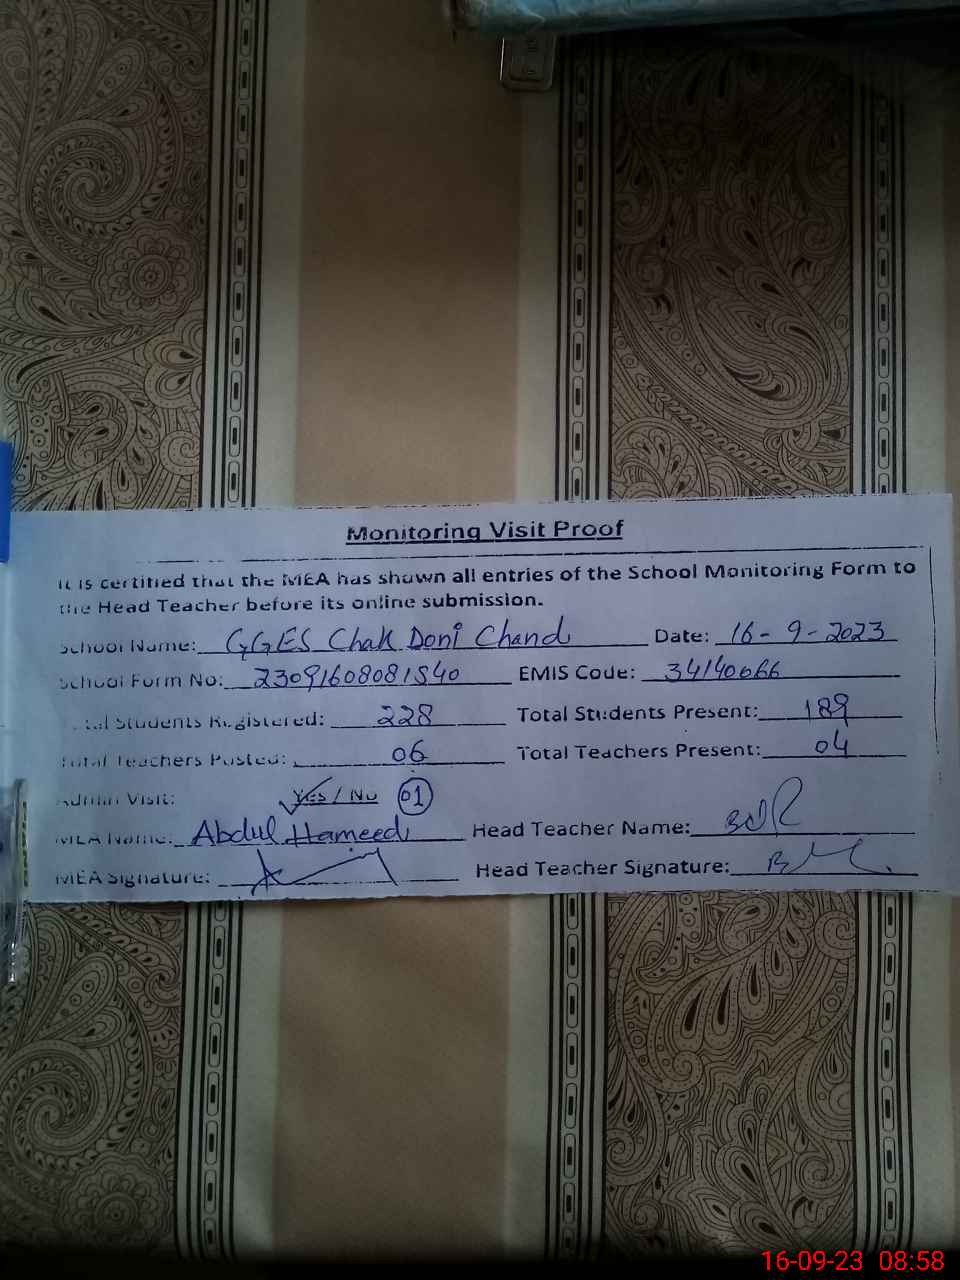 Monitoring Visit Proof
It is certified that the MEA has shown all entries of the School Monitoring Form to
the Head Teacher before its online submission.
School Name: GGES Chak Doni Chand Date: 16-9-2023
School Form No: 23091608081540 EMIS Code: 34140666
Total Students Registered: 228 Total Students Present: 189
Total Teachers Posted: 06 Total Teachers Present: 04
Admin Visit: Yes / No 01
MEA Name: Abdul Hameed Head Teacher Name:
MEA Signature: Head Teacher Signature:
16-09-23 08:58